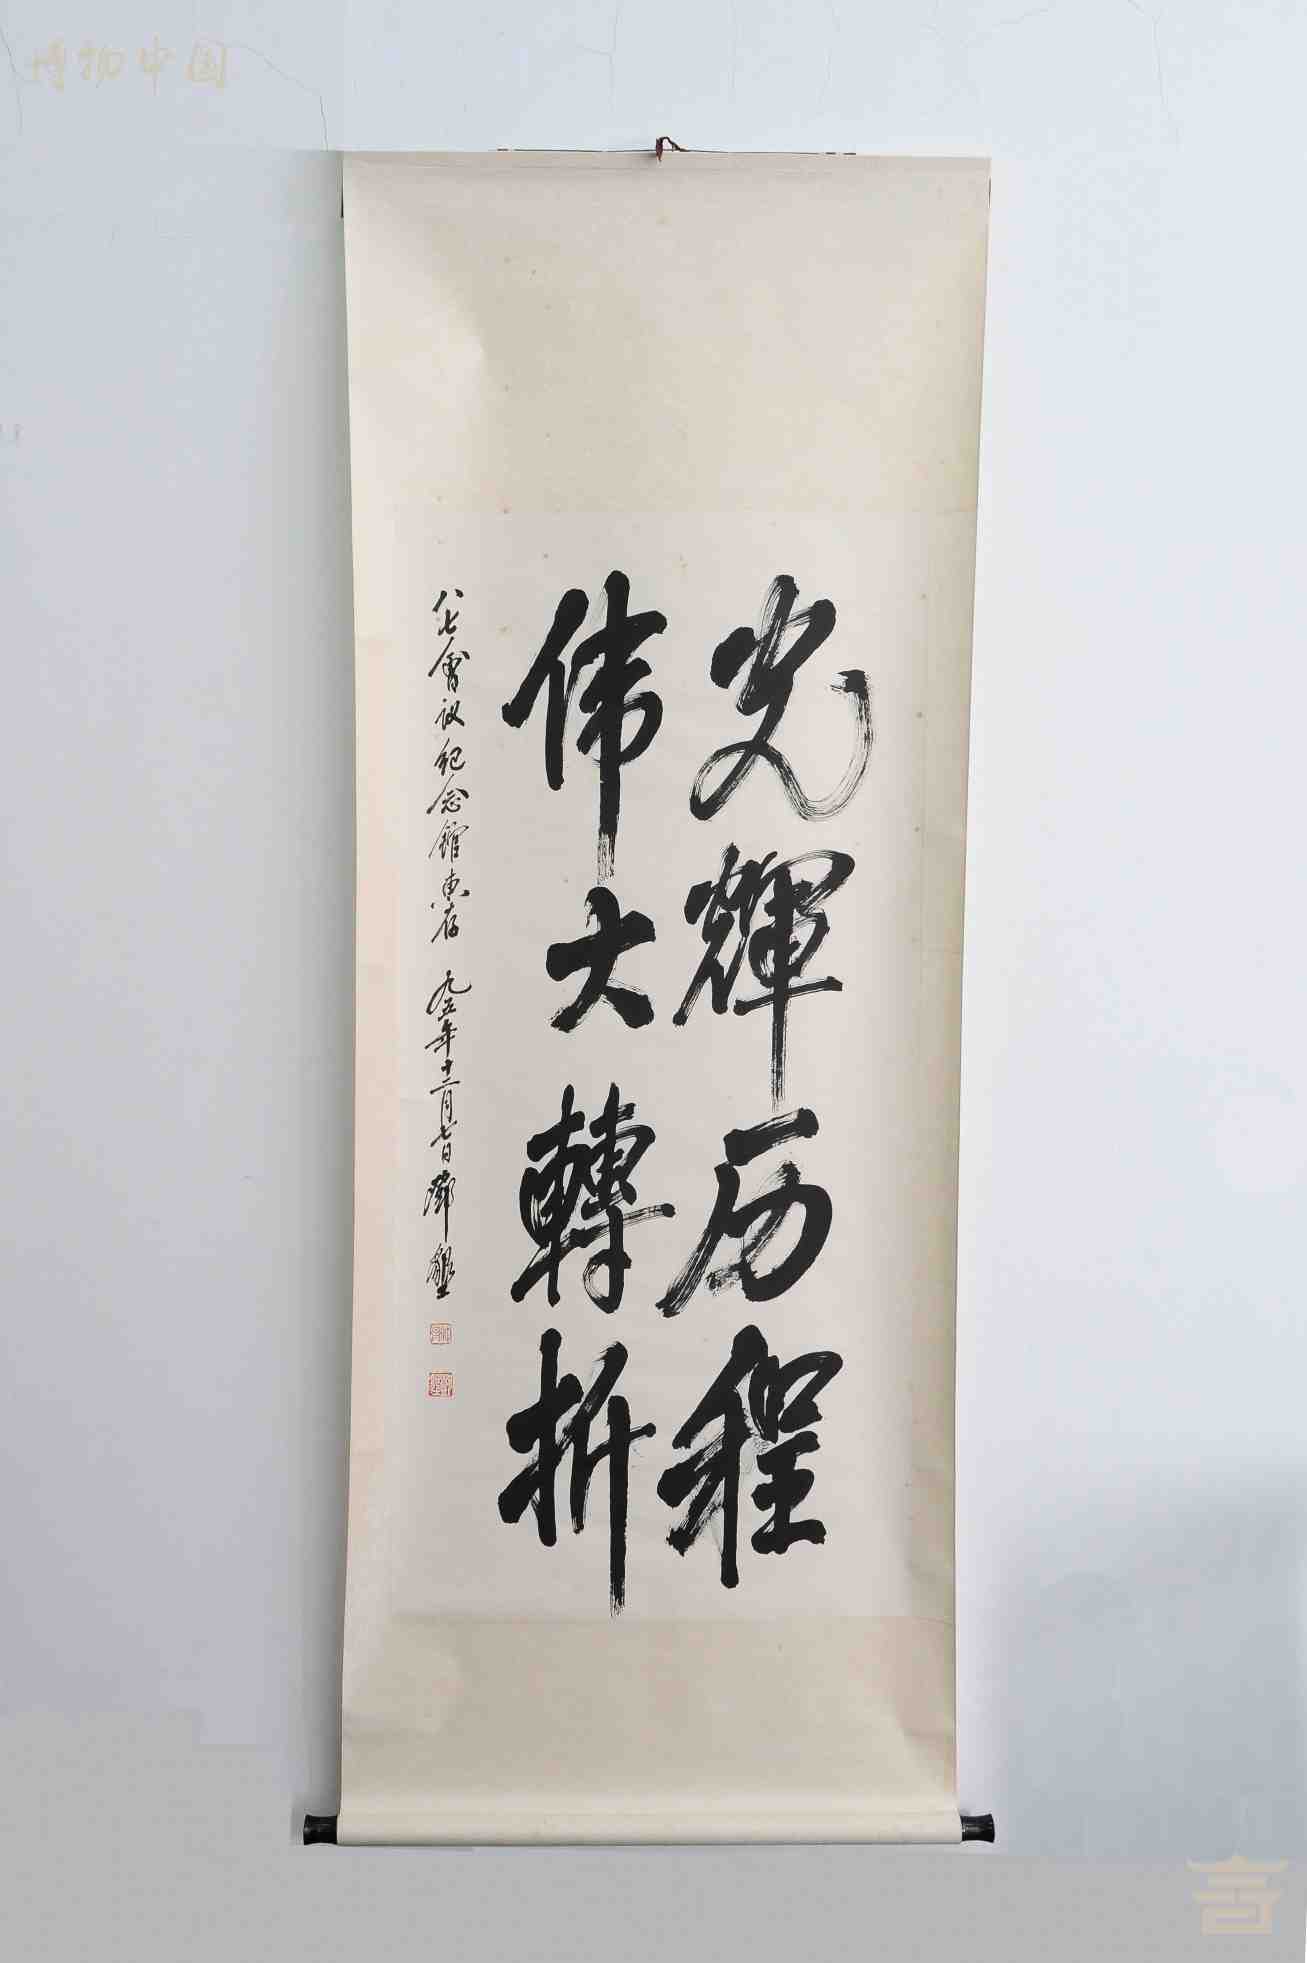 博物中国
光輝历程
伟大轉折
八七會议纪念館惠存 九五年十二月七日 鄧墾